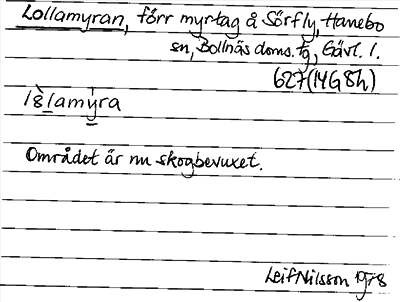 Lollamyran, förr myrtag å Sörfly, Hanebo
sn, Bollnäs doms. tg, Gävl. l.
627(14G8h)
Området är nu skogbevuxet.
Leif Nilsson 1978